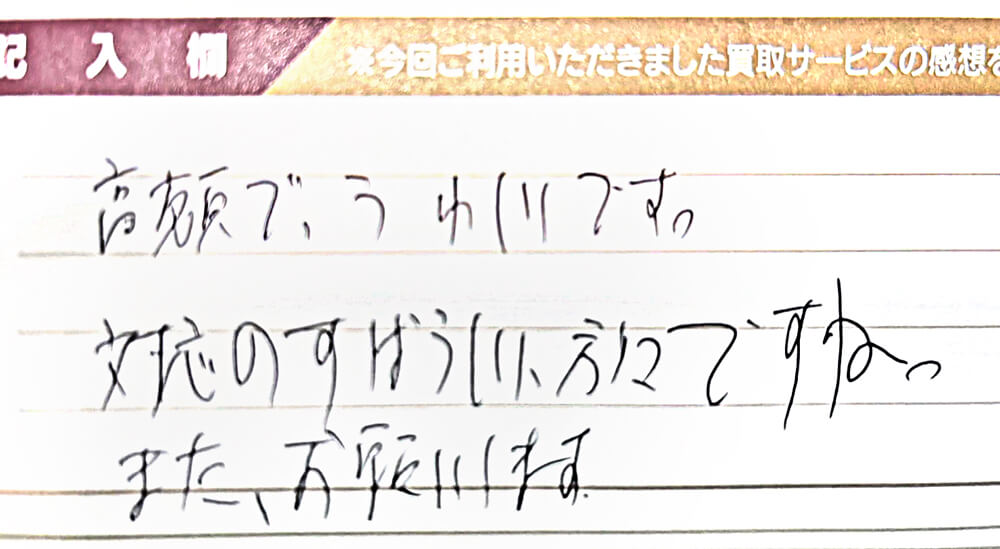 記入欄 ※今回ご利用いただきました買取サービスの感想を
高額で、うれしいです。
対応のすばらしい、方々ですね。
また、お願いします。